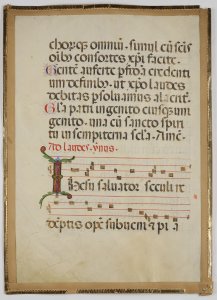 choꝝqꝫ omniū. simul cū scīs
oībꝰ consortes xp̄i facite.
Gentē auferte ꝑfidā credenti
um definibꝰ. ut xp̄o laudes
debitas ꝑsoluamus alacrit̄.
Gl̄a patri ingenito eiusqꝫ uni
genito. una cū sancto spiri
tu in sempiterna secl̄a. Amē.
Ad laudes. ymus.
Ihesu saluator seculi re
deptis ope subueni et pi a